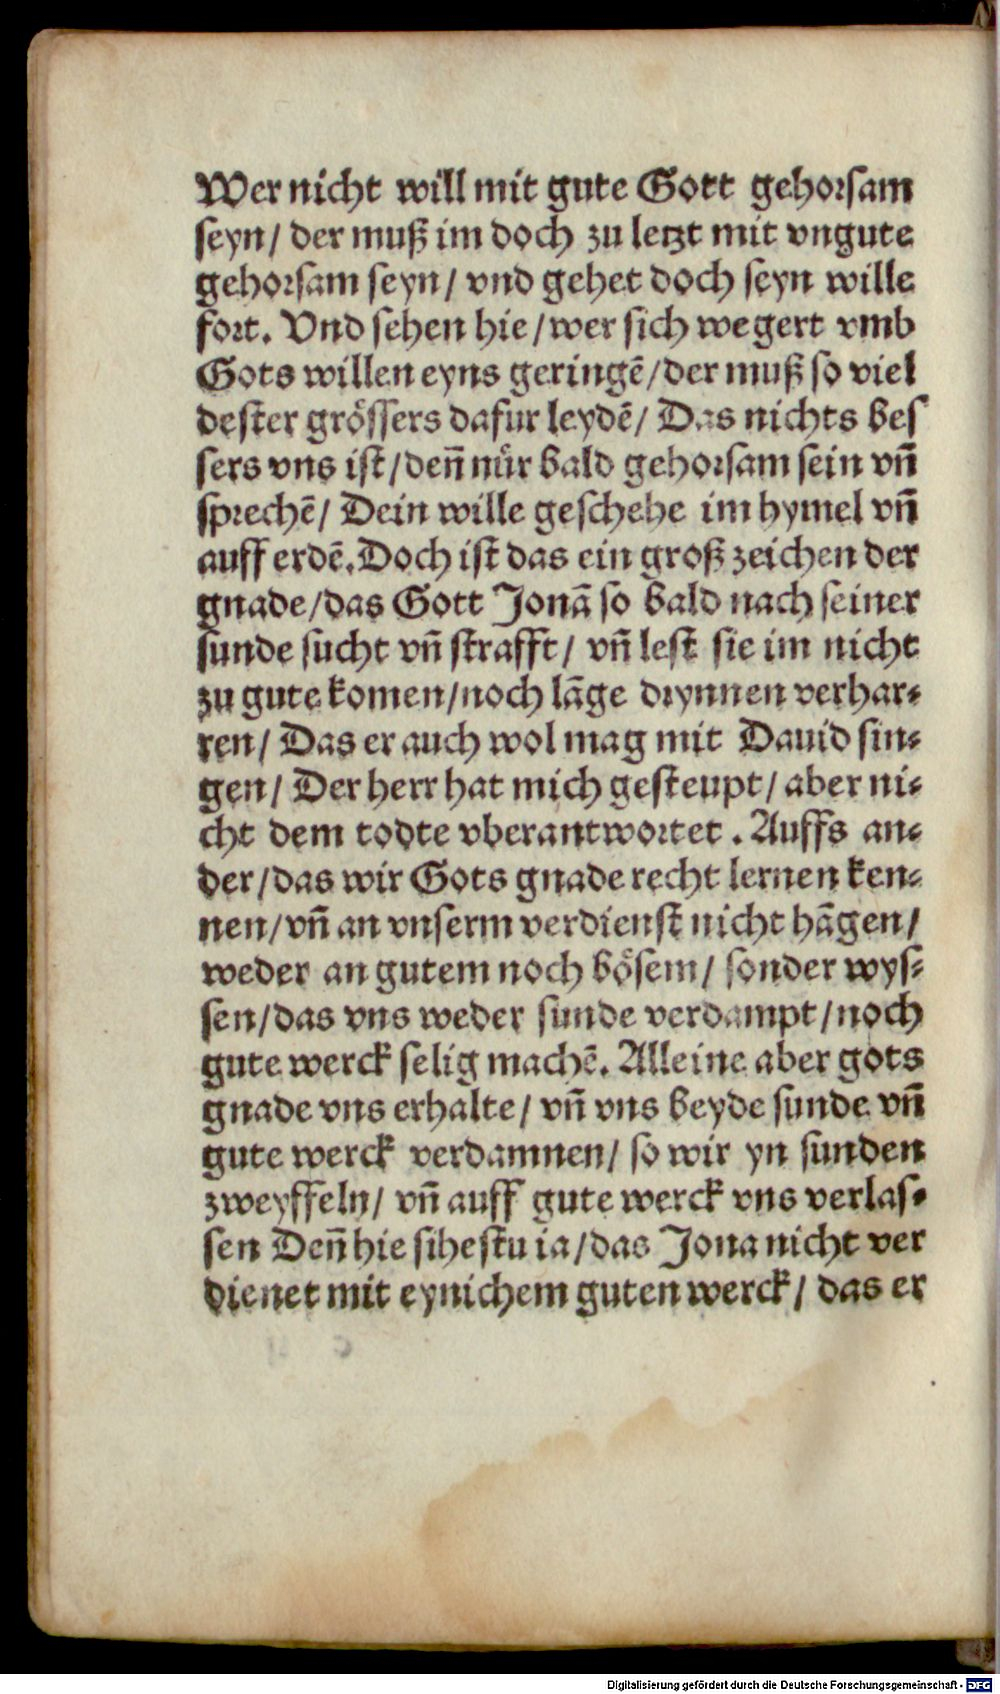 Wer nicht will mit gute Gott gehorsam
seyn/ der muß im doch zu letzt mit vngute
gehorsam seyn/ vnd gehet doch seyn wille
fort. Vnd sehen hie/wer sich wegert vmb
Gots willen eyns geringē/der muß so viel
dester grössers dafur leydē/ Das nichts bes
sers vns ist/deñ nůr bald gehorsam sein vñ
sprechē/ Dein wille geschehe im hymel vñ
auff erdē. Doch ist das ein groß zeichen der
gnade/das Gott Jonā so bald nach seiner
sunde sucht vñ strafft/ vñ lest sie im nicht
zu gute komen/noch lāge drynnen verhar⸗
ren/ Das er auch wol mag mit Dauid sin⸗
gen/ Der herr hat mich gesteupt/ aber ni⸗
cht dem todte vberantwortet. Auffs an⸗
der/das wir Gots gnade recht lernen ken⸗
nen/vñ an vnserm verdienst nicht hāgen/
weder an gutem noch bösem/ sonder wys⸗
sen/das vns weder sunde verdampt/noch
gute werck selig machē. Alleine aber gots
gnade vns erhalte/ vñ vns beyde sunde vñ
gute werck verdamnen/ so wir yn sunden
zweyffeln/ vñ auff gute werck vns verlas⸗
sen Deñ hie sihestu ia/das Jona nicht ver
dienet mit eynichem guten werck/ das er
Digitalisierung gefördert durch die Deutsche Forschungsgemeinschaft - DFG